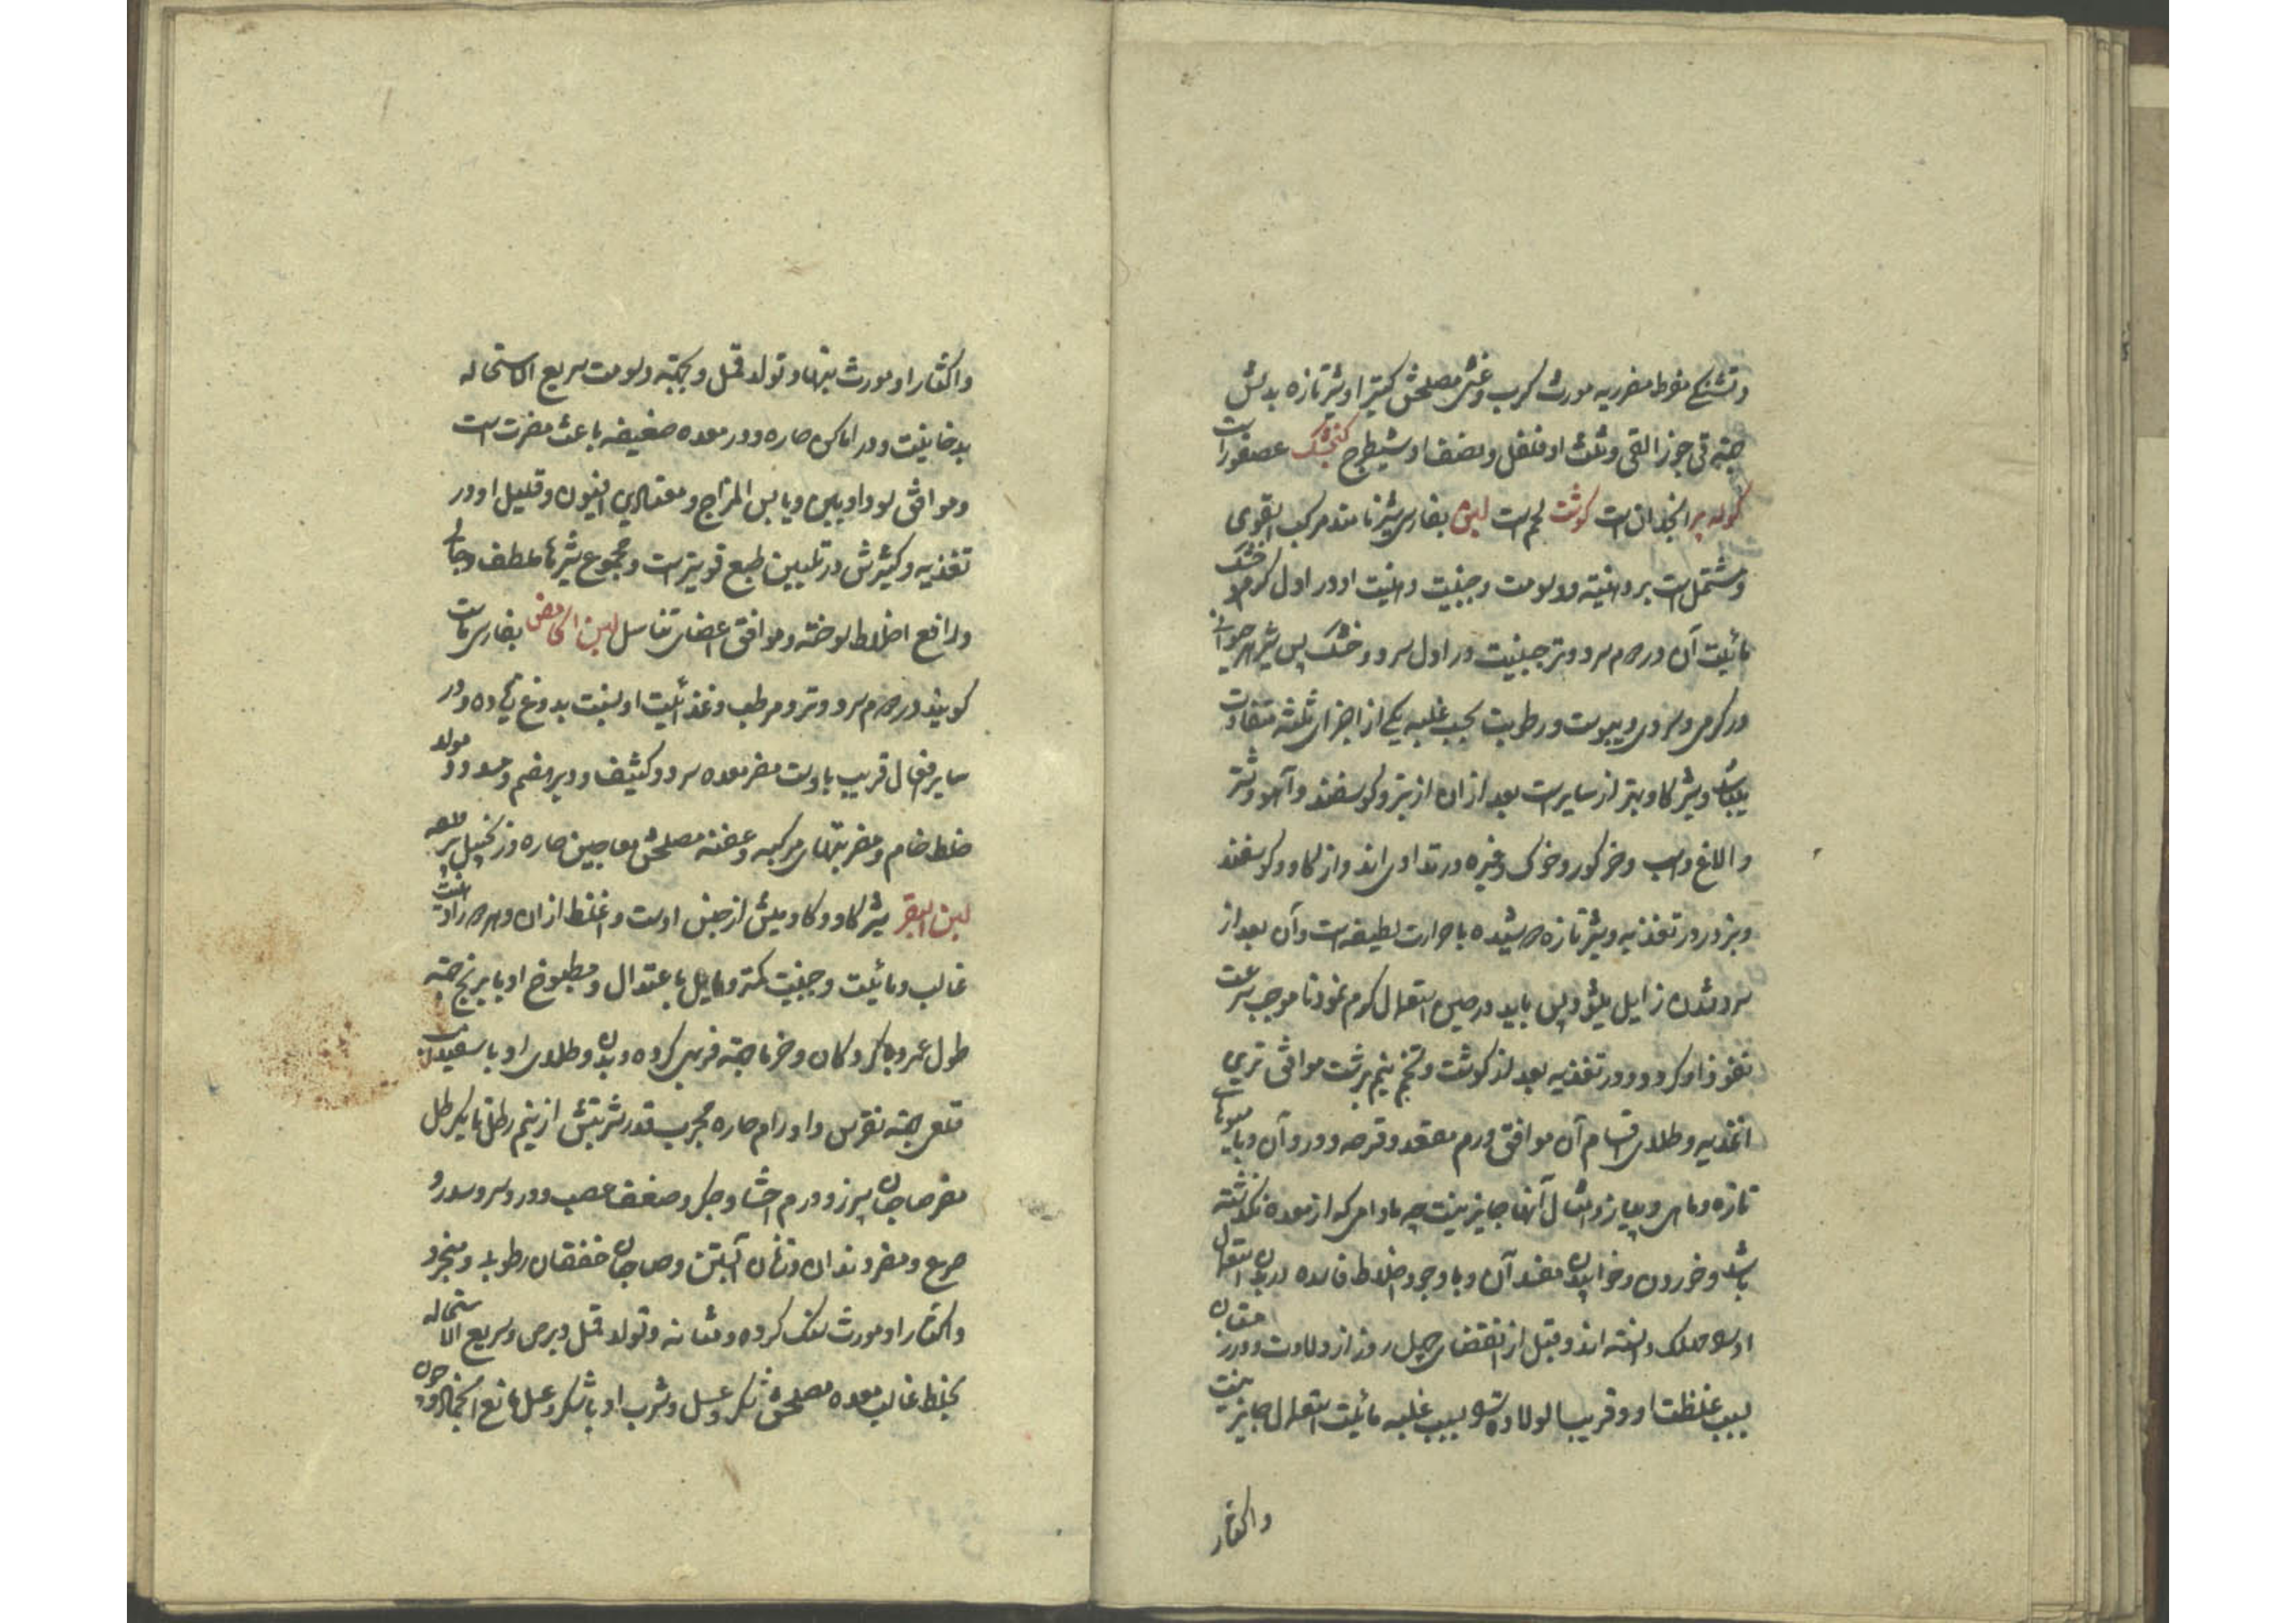 و تشنج مفرط مضر ریه مورث کرب و غشی مصلحش کتیرا و شیر تازه بدلش
جهة قی جوز القی و ثلث او فلفل و نصف او شیطرج کنجشک عصفور است
کوله پر انجدان است کوشت لحم است لبن بفارسی شیر نامند مرکب القوی
و مشتمل است بر دهنیته و دسومت و جبنیت دهنیت او در اول کرم و خشک
مائیت آن در دوم سرد و تر جبنیت در اول سرد و خشک پس شیر هر حیوانی
در کرمی و سردی و یبوست و رطوبت بحسب غلبه یکی از اجزای ثلثه متفاوت
میباشد و شیر کاو بهتر از سایر است بعد از ان از بز و کوسفند و آهو و شتر
و الاغ و اسب و خر کور و خوک و غیره در تداوی اند و از کاو و کوسفند
و بز در در تغذیه و شیر تازه دوشیده با حرارت لطیفه است و آن بعد از
سرد شدن زایل میشود پس باید در حین استعمال کرم نمود تا موجب سرعت
نفوذ او کردد و در تغذیه بعد از کوشت و تخم نیم برشت موافق ترین
اغذیه و طلای اقسام آن موافق ورم مقعد و قرحه و درد آن و با میوهای
تازه و ماهی و پیاز و امثال آنها جایز نیست چه مادامی که از معده نکذشته
باشد و خوردن و خوابیدن مفسد آن و با وجود اخلاط فاسده در بدن استعمال
او را مهلک دانسته اند و قبل از انقضای چهل روز از ولادت و در زمستان
بسبب غلظت او و قریب الولاده بسبب غلبه مائیت استعمال جایز نیست
و اکثار
و اکثار او مورث تبها و تولد قمل و بجهته دسومت سریع الاستحاله
بدخانیت و در اماکن حاره و در معده ضعیفه باعث مضرت است
و موافق سوداویین و یابس المزاج و معتادین افیون و قلیل او در
تغذیه و کثیرش در تلیین طبع قویتر است و مجموع شیرها ملطف و جالی
و دافع اخلاط سوخته و موافق اعضای تناسل لبن الحامض بفارسی ماست
کویند در دوم سرد و تر و مرطب و غذائیت او بنسبت بدوغ زیاده و در
سایر افعال قریب باوست مضر معده سرد و کثیف و دیر هضم و مسدد و مولد
خلط خام و مضر تبهای مرکبه و عفنه مصلحش معاجین حاره و زنجبیل
لبن البقر شیر کاو و کاو میش از جنس اوست و اغلظ از ان و بهر دو را دهنیت
غالب و مائیت و جبنیت کمتر و مایل باعتدال و مطبوخ او با برنج جهته
طول عمر و با کردکان و خرما جهته فربهی کرده و بدن و طلای او با سفیداب
قلعی جهته نقرس و اورام حاره مجرب قدر شربتش از نیم رطل تا یکرطل
مضر صاحبان سپرز و ورم احشا و جکر و ضعف عصب و درد سر و سدر و
صرع و مضر دندان و زنان آبستن و صاحبان خفقان رطوبی و منجر
و اکثار او مورث سنک کرده و مثانه و تولد قمل و برص و سریع الاستحاله
بخلط غالب معده مصلحش شکر و عسل و شرب او با شکر و عسل مانع انجماد او و چون